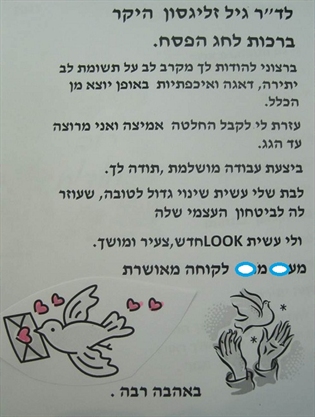 לד״ר גיל זליגסון היקר
ברכות לחג הפסח.
ברצוני להודות לך מקרב לב על תשומת לב
יתירה, דאגה ואיכפתיות באופן יוצא מן
הכלל.
עזרת לי לקבל החלטה אמיצה ואני מרוצה
עד הגג.
ביצעת עבודה מושלמת ,תודה לך.
לבת שלי עשית שינוי גדול לטובה, שעוזר
לה לביטחון העצמי שלה
ולי עשית LOOKחדש,צעיר ומושך.
לקוחה מאושרת
באהבה רבה .